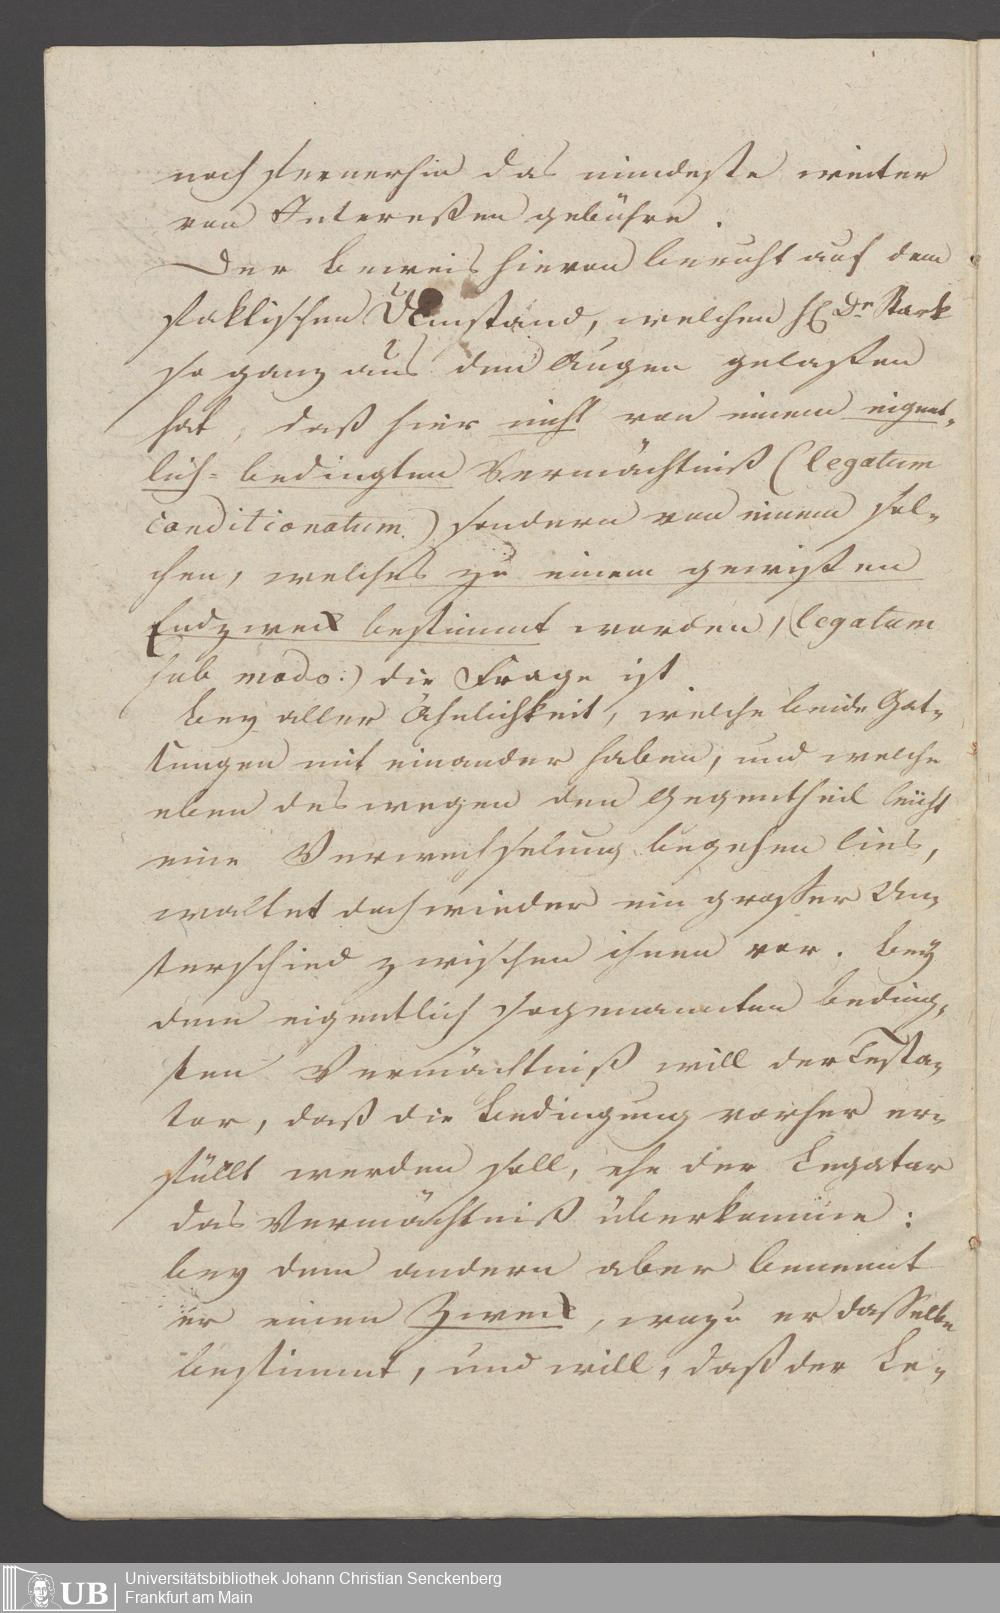 noch fernerhin das mindeste weiter
von Intereßen gebühre.
Der Beweis hievon beruht auf dem
faktischen Umstand, welchen H. Dr. Stark
so ganz aus den Augen gelaßen
hat, daß hier nicht von einem eigent-
lich-bedingten Vermächtniß (legatum
conditionatum.) sondern von einem sol-
chen, welches zu einem gewißen
Endzweck bestimmt worden, (legatum
sub modo:) die Frage ist.
Bey aller Ähnlichkeit, welche beide Gat-
tungen mit einander haben, und welche
eben deswegen den Gegentheil leicht
eine Verwechselung begehen lies,
waltet doch wieder ein großer Un-
terschied zwischen ihnen vor. Bey
dem eigentlich sogenannten beding-
ten Vermächtniß will der Testa-
tor, daß die Bedingung vorher er-
füllt werden soll, ehe der Legatar
das Vermächtniß überkomme:
bey dem andern aber benennt
er einen Zweck, wozu er dasselbe
bestimmt, und will, daß der Le-
UB
Universitätsbibliothek Johann Christian Senckenberg
Frankfurt am Main